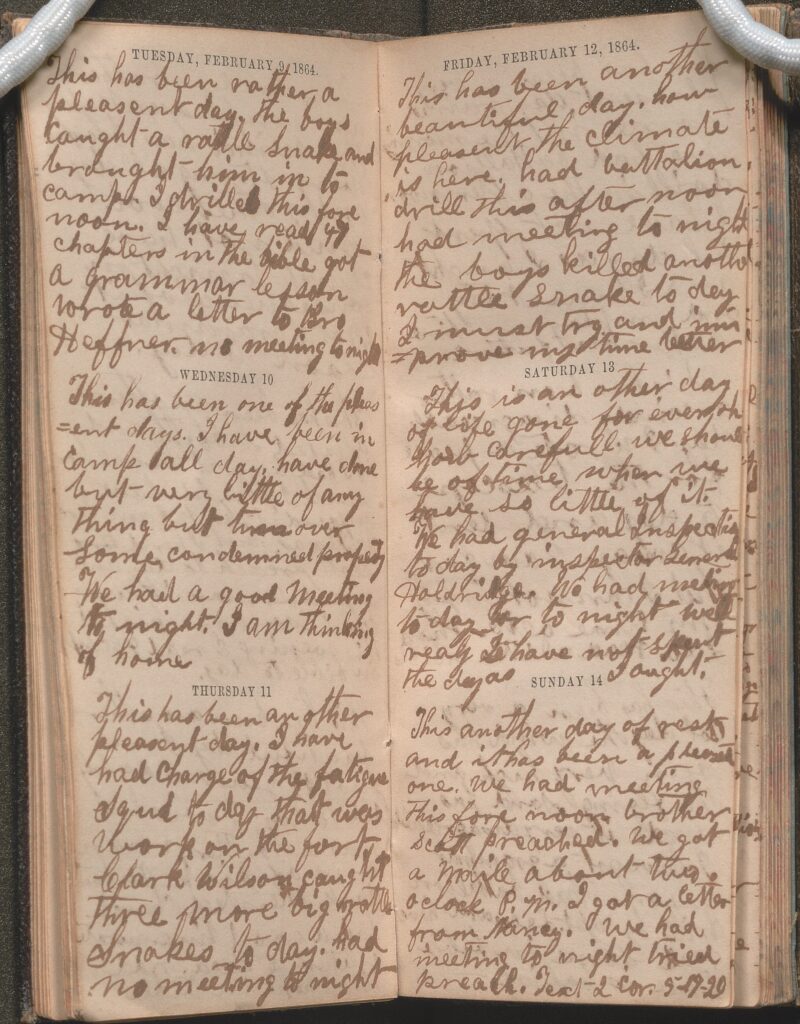 TUESDAY, FEBRUARY 9, 1864.
This has been rather a
pleasent day. the boys
caught a rattle Snake and
braught him in to
camp. I drilled this fore
noon. I have read 47
chapters in the bible got
a grammar lesson
wrote a letter to Bro
Heffner. no meeting to night
WEDNESDAY 10
This has been one of the pleas
=ent days. I have been in
camp all day, have done
but very little of any
thing but turn over
Some condemned property
We had a good Meeting
to night. I am thinking
of home
THURSDAY 11
This has been another
pleasent day. I have
had Charge of the fatigue
Squd to day that was
work on the fort
Clark Wilson caught
three more big rattle
Snakes to day. had
no meeting to night
FRIDAY, FEBRUARY 12, 1864.
This has been another
beautiful day. how
pleasent the climate
is here. had battalion
drill this after noon
had meeting to night
the boys killed another
rattle Snake to day
I must try and im
=prove my time better
SATURDAY 13
This is an other day
of life gone for ever oh
how carefull we should
be of time when we
have so little of it.
We had general Inspection
to day by inspector General
Holdridge. We had meeting
to day or to night well
realy I have not spent
the day as I aught.
SUNDAY 14
This another day of rest
and it has been a plesent
one. We had meeting
this fore noon brother
Scott preached. We got
a Maile about two
oclock P. M. I got a letter
from Nancy. We had
meeting to night tried
preach. Text 2 Cor. 5-17-20